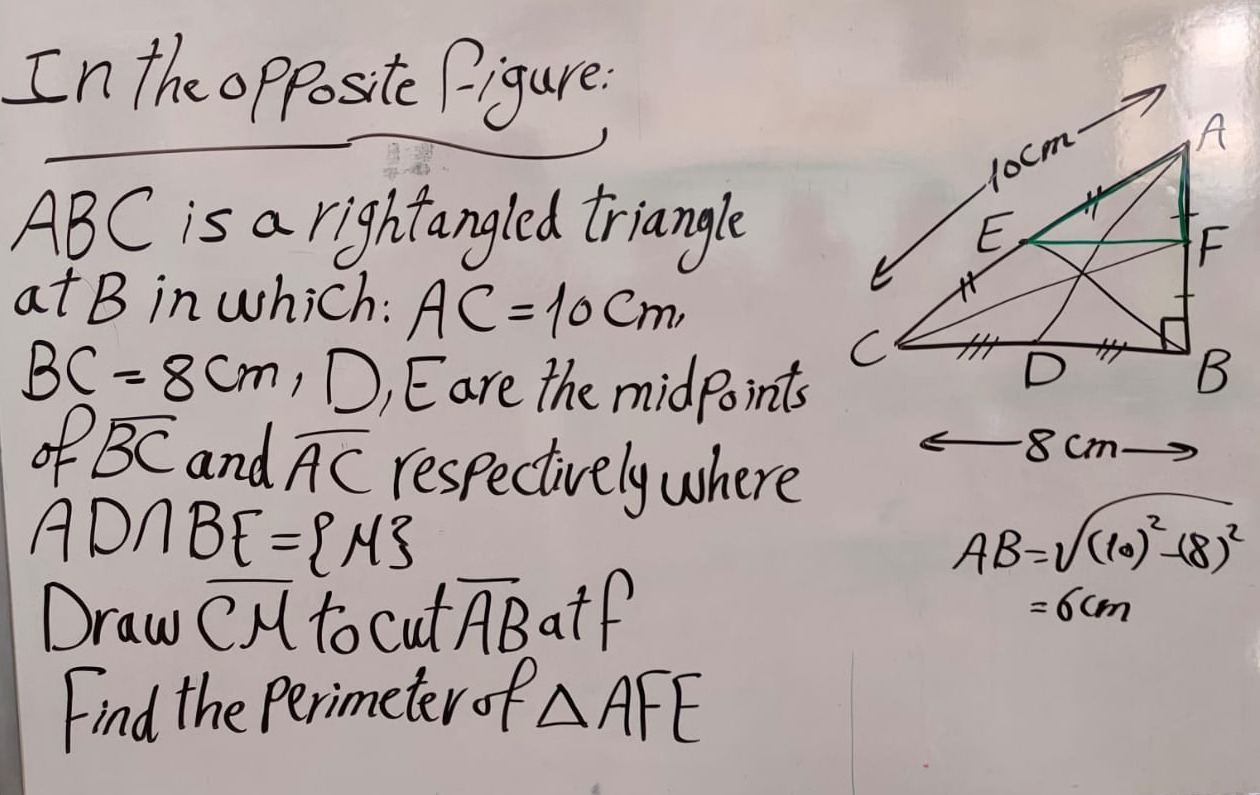 In the opposite figure:
ABC is a rightangled triangle
at B in which: AC = 10 Cm,
BC = 8 Cm, D, E are the midpoints
of BC and AC respectively where
AD∩BE = {M}
Draw CM to cut AB at f
Find the perimeter of △ AFE
10cm
A
E
F
C
D
B
8 cm
AB = √(10)² - (8)²
= 6cm